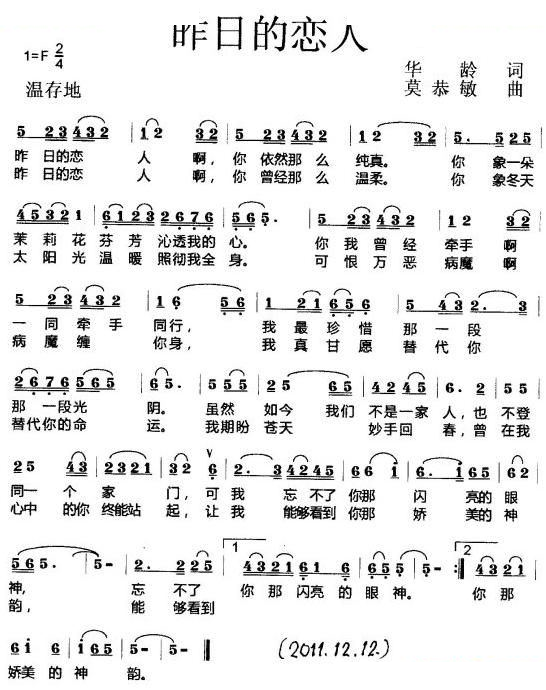 昨日的恋人
1=F 2/4
温存地
华 龄 词
莫 恭 敏 曲
5 23432 12 32 5 23432 12 32 5. 525
昨 日的恋 人 啊, 你 依然那 么 纯真。 你 象一朵
昨 日的恋 人 啊, 你 曾经那 么 温柔。 你 象冬天
45321 61232676 565. 12 3 12 32
茉 莉 花 芬 芳 沁透我的 心。 你 我 曾 经 牵手 啊
太 阳 光 温 暖 照彻我全 身。 可 恨 万 恶 病魔 啊
5 23 432 16 56 1 21656 52 2. 3
一 同 牵 手 同行, 我 最 珍 惜 那 一 段
病 魔 缠 你 身, 我 真 甘 愿 替 代 你
2676565 65. 2345 25 65 4245 6. 2 55
那 一段 光 阴。 虽然 如今 我们 不是一家 人, 也 不登
替代你的命 运。 我期盼 苍天 妙手回 春, 曾 在我
25 43 2321 32 6 2. 3 4245 66 1 6. 1653 62
同一 个 家 门, 可 我 忘 不了 你那 闪 亮的眼
心中 的你 终能站 起, 让 我 能够看到 你那 娇 美的神
565. 5- 5- 2. 225 1 4321 61 655 5- :‖ 2 4321
神, 忘 不了 你 那 闪亮 的 眼 神。 你 那
韵, 能 够看到
61 6 1 5- 5- (2011.12.12.)
娇美 的 神 韵。